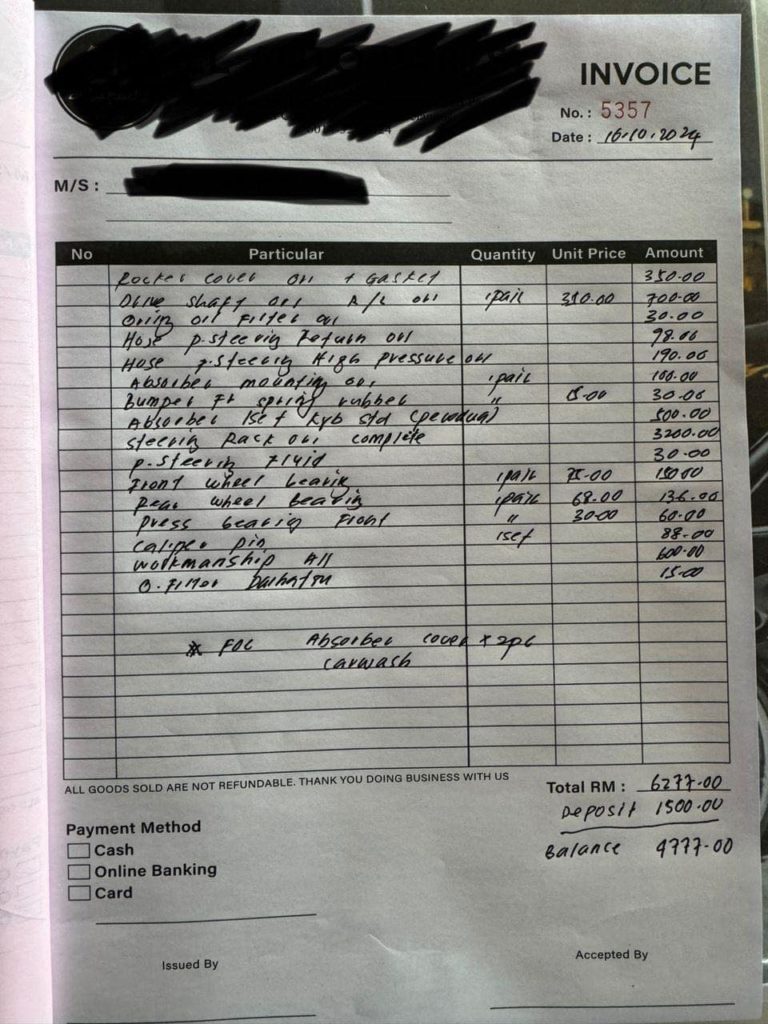 INVOICE
No. : 5357
Date : 16.10.2024
M/S :
No Particular Quantity Unit Price Amount
Rocker cover ori + Gasket 350.00
Drive shaft ori A/L ori 1pair 350.00 700.00
Oring oil Filter ori 30.00
Hose p.steering Return ori 98.00
Hose p.steering High pressure ori 190.00
Absorber mounting ori 1pair 100.00
Bumper Ft spring rubber " 15.00 30.00
Absorber 1set kyb std (perodua) 500.00
steering Rack ori complete 3200.00
p.steering Fluid 30.00
Front wheel bearing 1pair 75.00 150.00
Rear wheel bearing 1pair 68.00 136.00
press bearing Front " 30.00 60.00
caliper pin 1set 88.00
workmanship All 600.00
O.Filter Daihatsu 15.00
* FOC Absorber cover x 2pc
carwash
ALL GOODS SOLD ARE NOT REFUNDABLE. THANK YOU DOING BUSINESS WITH US
Total RM : 6277.00
Deposit 1500.00
Balance 4777.00
Payment Method
Cash
Online Banking
Card
Issued By
Accepted By